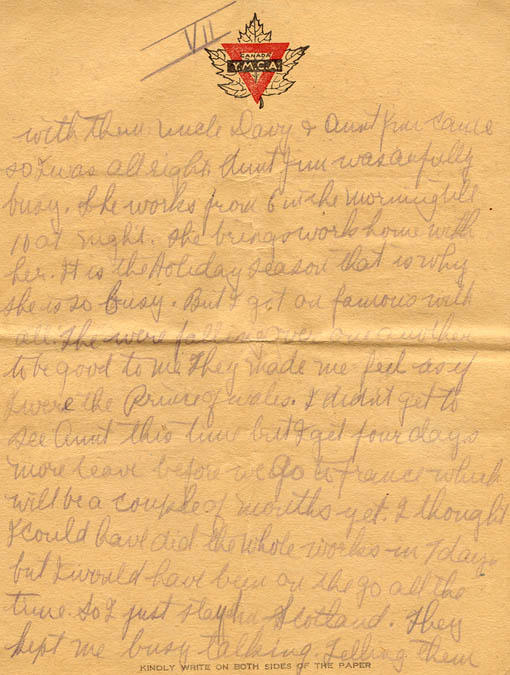 VII
CANADA
Y.M.C.A.
with them. Uncle Davy & Aunt Jim came
so I was all right. Aunt Jim was awfully
busy. She works from 6 in the morning till
10 at night. She brings work home with
her. It is the Holiday season that is why
she is so busy. But I got on famous with
all. The were falling over one another
to be good to me. They made me feel as if
I were the Prince of Wales. I didn't get to
see Aunt this time but I get four days
more leave before we go to France which
will be a couple of months yet. I thought
I could have did the whole works in 7 days
but I would have been on the go all the
time. So I just stay in Scotland. They
kept me busy talking. Telling them
KINDLY WRITE ON BOTH SIDES OF THE PAPER